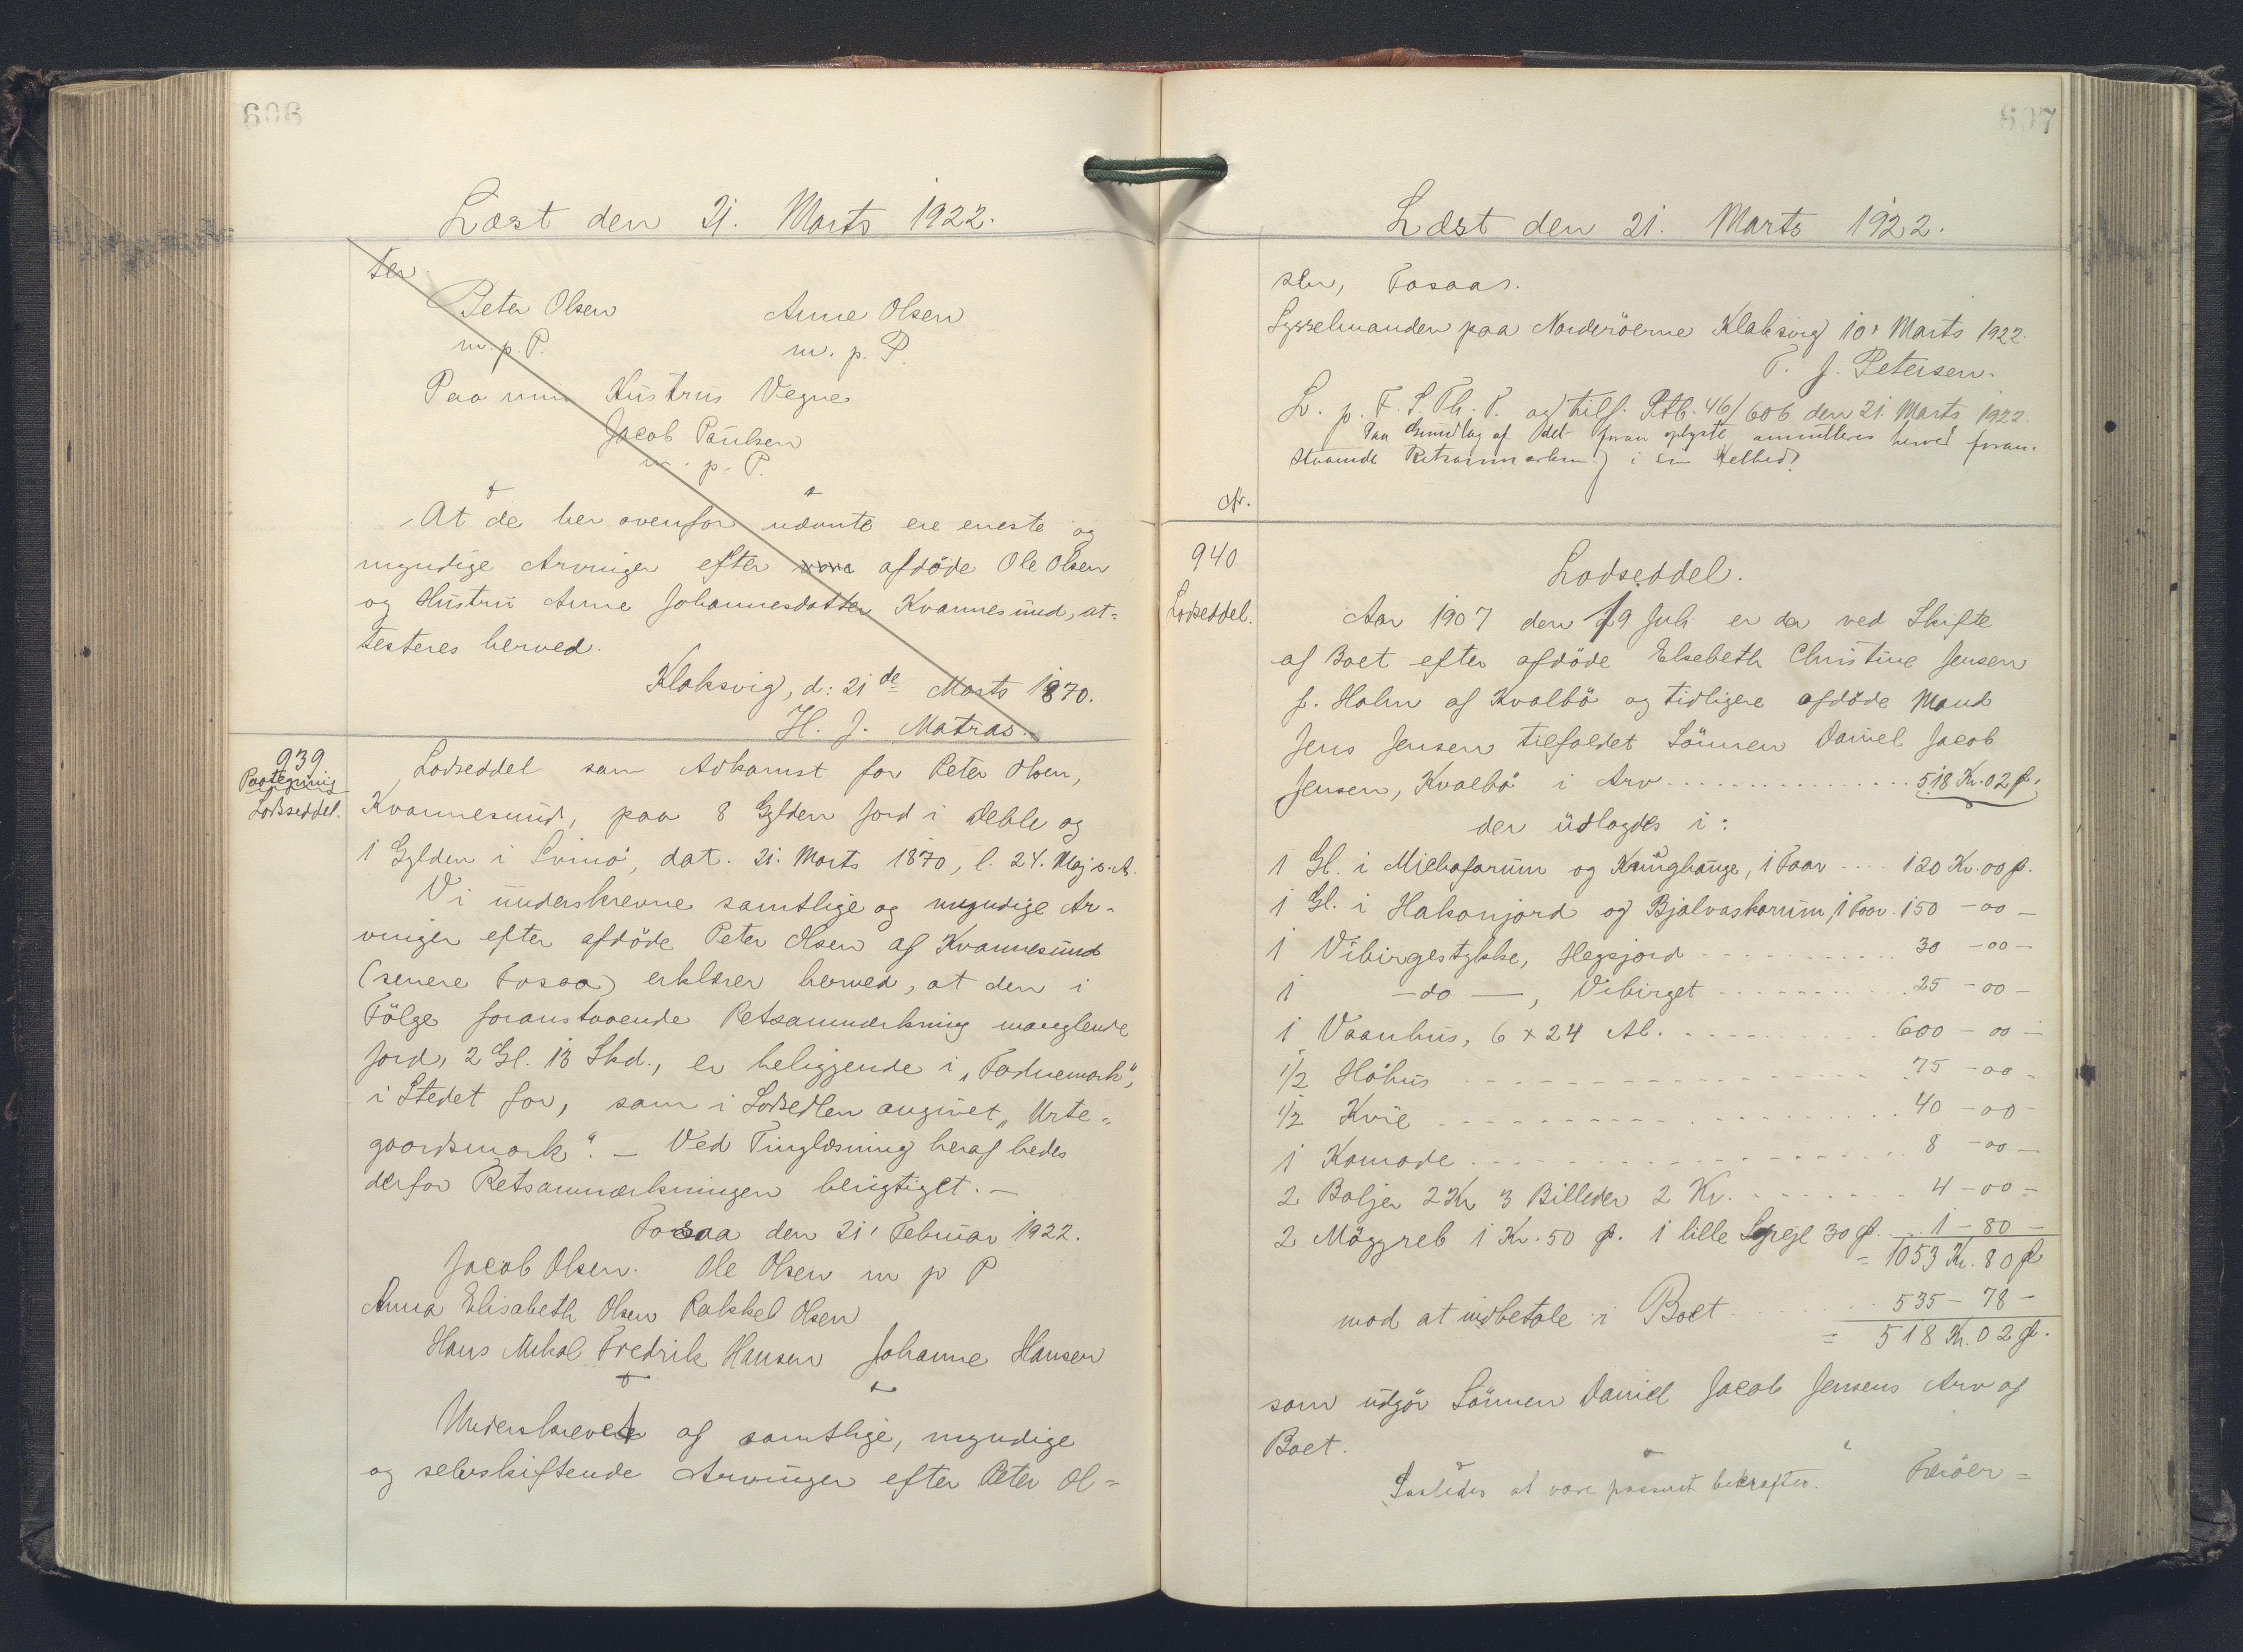 606
Læst den 21. Marts 1922.
ter
Peter Olsen Anne Olsen
m. p. P. m. p. P.
Paa min Hustrus Vegne
Jacob Paulsen
m. p. P.
At de her ovenfor nævnte ere eneste og
myndige Arvinger efter vore afdöde Ole Olsen
og Hustru Anne Johannesdatter Kvannesund, at=
testeres herved.
Klaksvig, d: 21de Marts 1870.
H. J. Matras.
939
Paategning
Lodseddel.
Lodseddel som Adkomst for Peter Olsen,
Kvannesund, paa 8 Gylden Jord i Deble og
1 Gylden i Svinö, dat. 21. Marts 1870, l. 24. Maj s. A.
Vi underskrevne samtlige og myndige Ar-
vinger efter afdöde Peter Olsen af Kvannesund
(senere Tosaa) erklærer herved, at den i
Fölge foranstaaende Retsanmærkning manglende
Jord, 2 Gl. 13 Skd., er beliggende i „Fodnemark",
i Stedet for, som i Lodsedlen angivet „Urte=
gaardsmark". - Ved Tinglæsning heraf bedes
derfor Retsanmærkningen berigtiget. -
Tosaa den 21' Februar 1922.
Jacob Olsen. Ole Olsen m p P
Anna Elisabeth Olsen Rakkel Olsen
Hans Mikal Fredrik Hansen Johanne Hansen
Underskrevet af samtlige, myndige
og selvskiftende Arvinger efter Peter Ol=
607
Læst den 21. Marts 1922.
sen, Tosaas.
Sysselmanden paa Norderöerne Klaksvig 10' Marts 1922.
T. J. Petersen.
L. p. F. S. Th. P. og tilf. Ptb. 46/606 den 21. Marts 1922.
Paa Grundlag af det foran oplyste annulleres herved foran-
staaende Retsanmærkning i sin Helhed?
Nr.
940
Lodseddel.
Lodseddel.
Aar 1907 den 19 Juli er der ved Skifte
af Boet efter afdöde Elsebeth Christine Jensen
f. Holm af Kvalbö og tidligere afdöde Mand
Jens Jensen tilfaldet Sönnen Daniel Jacob
Jensen, Kvalbö i Arv 518 Kr. 02 ø.
der udlagdes i:
1 Gl. i Michafarum og Krunghauge, 1 Faar 120 Kr. 00 ø.
1 Gl. i Hakonjord og Bjalvaskarum, 1 Faar. 150 - 00 -
1 Vibirgestykke, Hegsjord 30 - 00 -
1 - do - , Vibirget 25 - 00 -
1 Vaanhus, 6 x 24 Al. 600 - 00 -
1/2 Höhus 75 - 00 -
1/2 Kvie 40 - 00 -
1 Komode 8 - 00 -
2 Baljer 2 Kr 3 Billeder 2 Kr. 4 - 00 -
2 Möggreb 1 Kr. 50 ø. 1 lille Spejl 30 ø. 1 - 80 -
= 1053 Kr. 80 ø
mod at indbetale i Boet 535 - 78 -
= 518 Kr. 02 ø.
som udgör Sönnen Daniel Jacob Jensens Arv af
Boet.
Saaledes at være passeret bekræftes. Færöer=